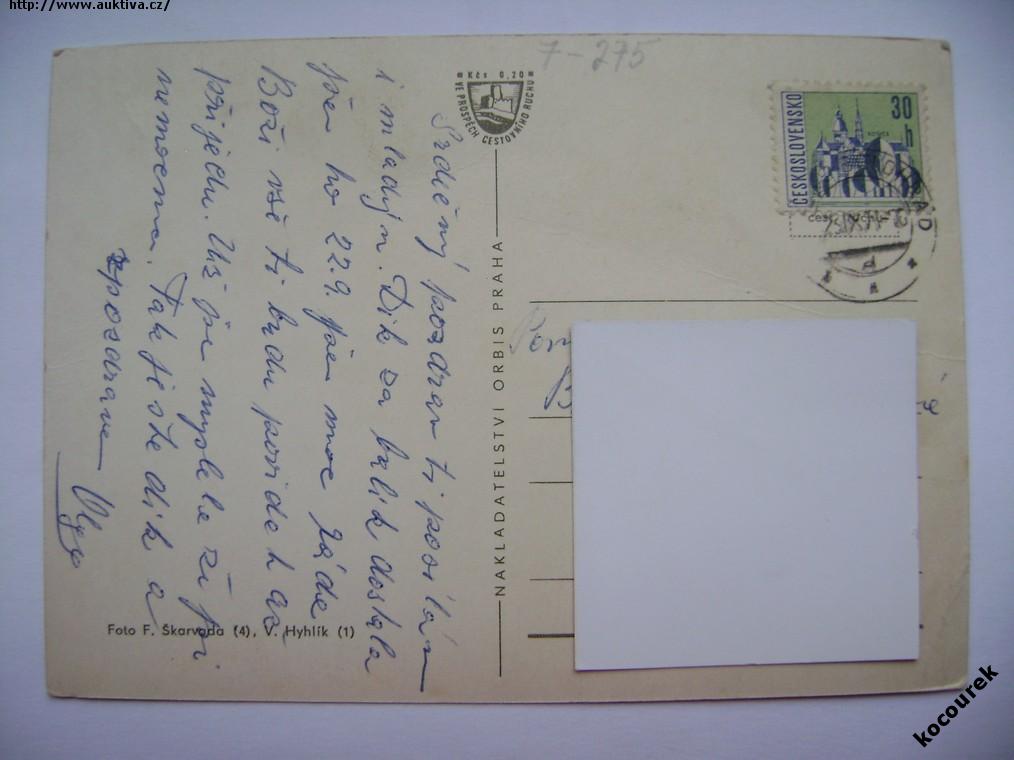 http://www.auktiva.cz/
7-275
Kčs 0,20
VE PROSPĚCH CESTOVNÍHO RUCHU
ČESKOSLOVENSKO
30
h
KOŠICE
Srdečný pozdrav ti posílám
i mladým. Dík za balík dostala
jsem ho 22.9. jsem moc ráda
Boži vše ti budu povídat až
přijedu. Už jsem myslela že jsi
nemocna. Tak ještě dík a
pozdrav
Olga
NAKLADATELSTVÍ ORBIS PRAHA
Foto F. Škarvada (4), V. Hyhlík (1)
kocourek